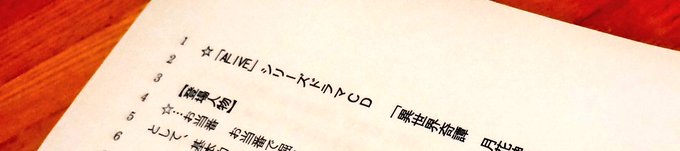 1
2 ☆「ALIVE」シリーズドラマCD 「異世界奇譚 月花
3
4 【登場人物】
5 ☆…お当番 お当番で
6 として、基本